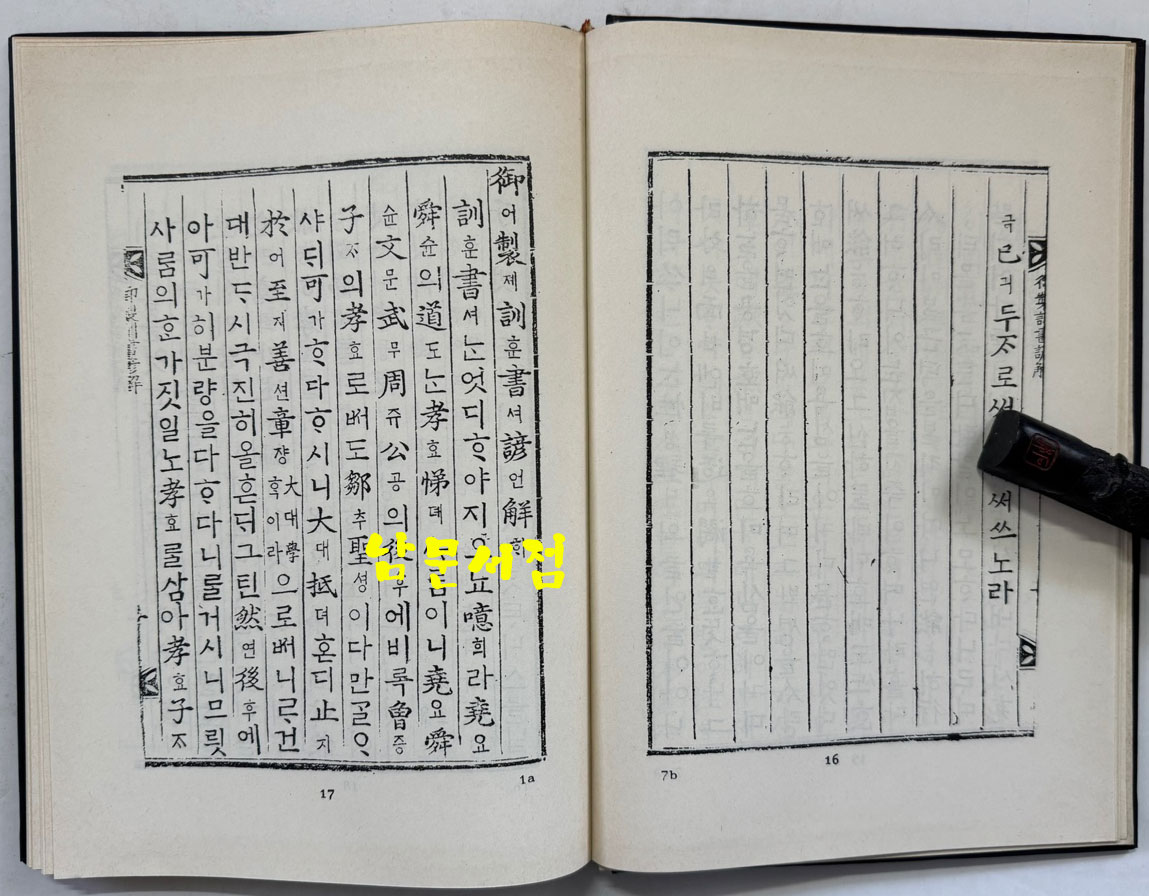 극己긔두ᄌᆞ로써
써쓰노라
7b
16
御어製졔訓훈書셔諺언解ᄒᆡ
訓훈書셔ᄂᆞᆫ엇디ᄒᆞ야지으뇨噫희라堯요
舜슌의道도ᄂᆞᆫ孝효悌뎨 이니堯요舜
슌文문武무周쥬公공의後후에비록曾증
子ᄌᆞ의孝효로ᄡᅥ도鄒추聖셩이다만ᄀᆞᆯᄋᆞ
샤ᄃᆡ可가ᄒᆞ다ᄒᆞ시니大대抵뎌혼디止지
於어至지善션章쟝大대學ᄒᆞᆨ이라으로ᄡᅥ니ᄅᆞ건
대반ᄃᆞ시극진히올흔ᄃᆡ그틴然연後후에
아可가히분량을다ᄒᆞ다니를거시니므릇
사ᄅᆞᆷ의ᄒᆞᆫ가짓일노孝효ᄅᆞᆯ삼아孝효子ᄌᆞ
1a
17
남문서점